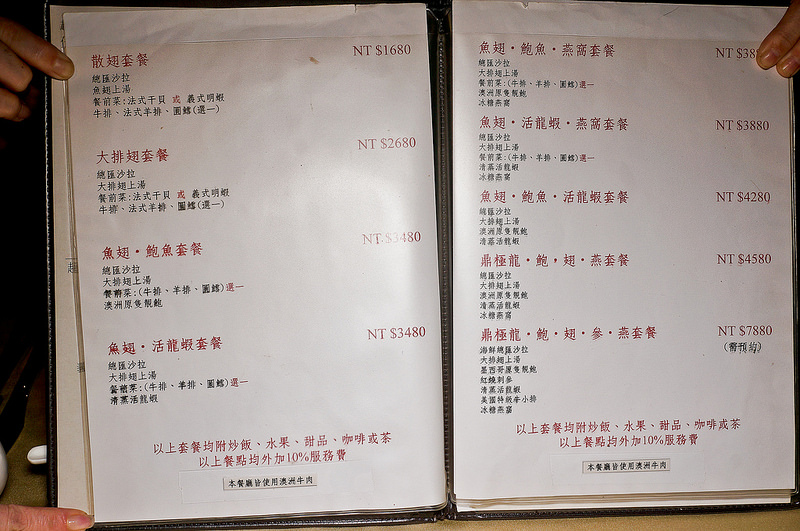 散翅套餐 NT $1680
總匯沙拉
魚翅上湯
餐前菜:法式干貝 或 義式明蝦
牛排、法式羊排、圓鱈(選一)
大排翅套餐 NT $2680
總匯沙拉
大排翅上湯
餐前菜:法式干貝 或 義式明蝦
牛排、法式羊排、圓鱈(選一)
魚翅·鮑魚套餐 NT $3480
總匯沙拉
大排翅上湯
餐前菜:(牛排、羊排、圓鱈)選一
澳洲原隻靚鮑
魚翅·活龍蝦套餐 NT $3480
總匯沙拉
大排翅上湯
餐前菜:(牛排、羊排、圓鱈)選一
清蒸活龍蝦
以上套餐均附炒飯、水果、甜品、咖啡或茶
以上餐點均外加10%服務費
本餐廳皆使用澳洲牛肉
魚翅·鮑魚·燕窩套餐 NT $38
總匯沙拉
大排翅上湯
餐前菜:(牛排、羊排、圓鱈)選一
澳洲原隻靚鮑
冰糖燕窩
魚翅·活龍蝦·燕窩套餐 NT $3880
總匯沙拉
大排翅上湯
餐前菜:(牛排、羊排、圓鱈)選一
清蒸活龍蝦
冰糖燕窩
魚翅·鮑魚·活龍蝦套餐 NT $4280
總匯沙拉
大排翅上湯
澳洲原隻靚鮑
清蒸活龍蝦
鼎極龍·鮑·翅·燕套餐 NT $4580
總匯沙拉
大排翅上湯
澳洲原隻靚鮑
清蒸活龍蝦
冰糖燕窩
鼎極龍·鮑·翅·參·燕套餐 NT $7880
(需預約)
海鮮總匯沙拉
大排翅上湯
墨西哥原隻靚鮑
紅燒刺參
清蒸活龍蝦
美國特級牛小排
冰糖燕窩
以上套餐均附炒飯、水果、甜品、咖啡或茶
以上餐點均外加10%服務費
本餐廳皆使用澳洲牛肉